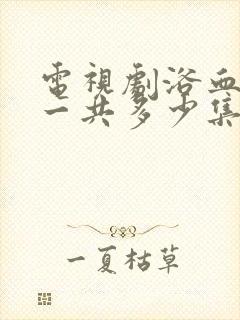 電視劇浴血
一共多少集
一夏枯草